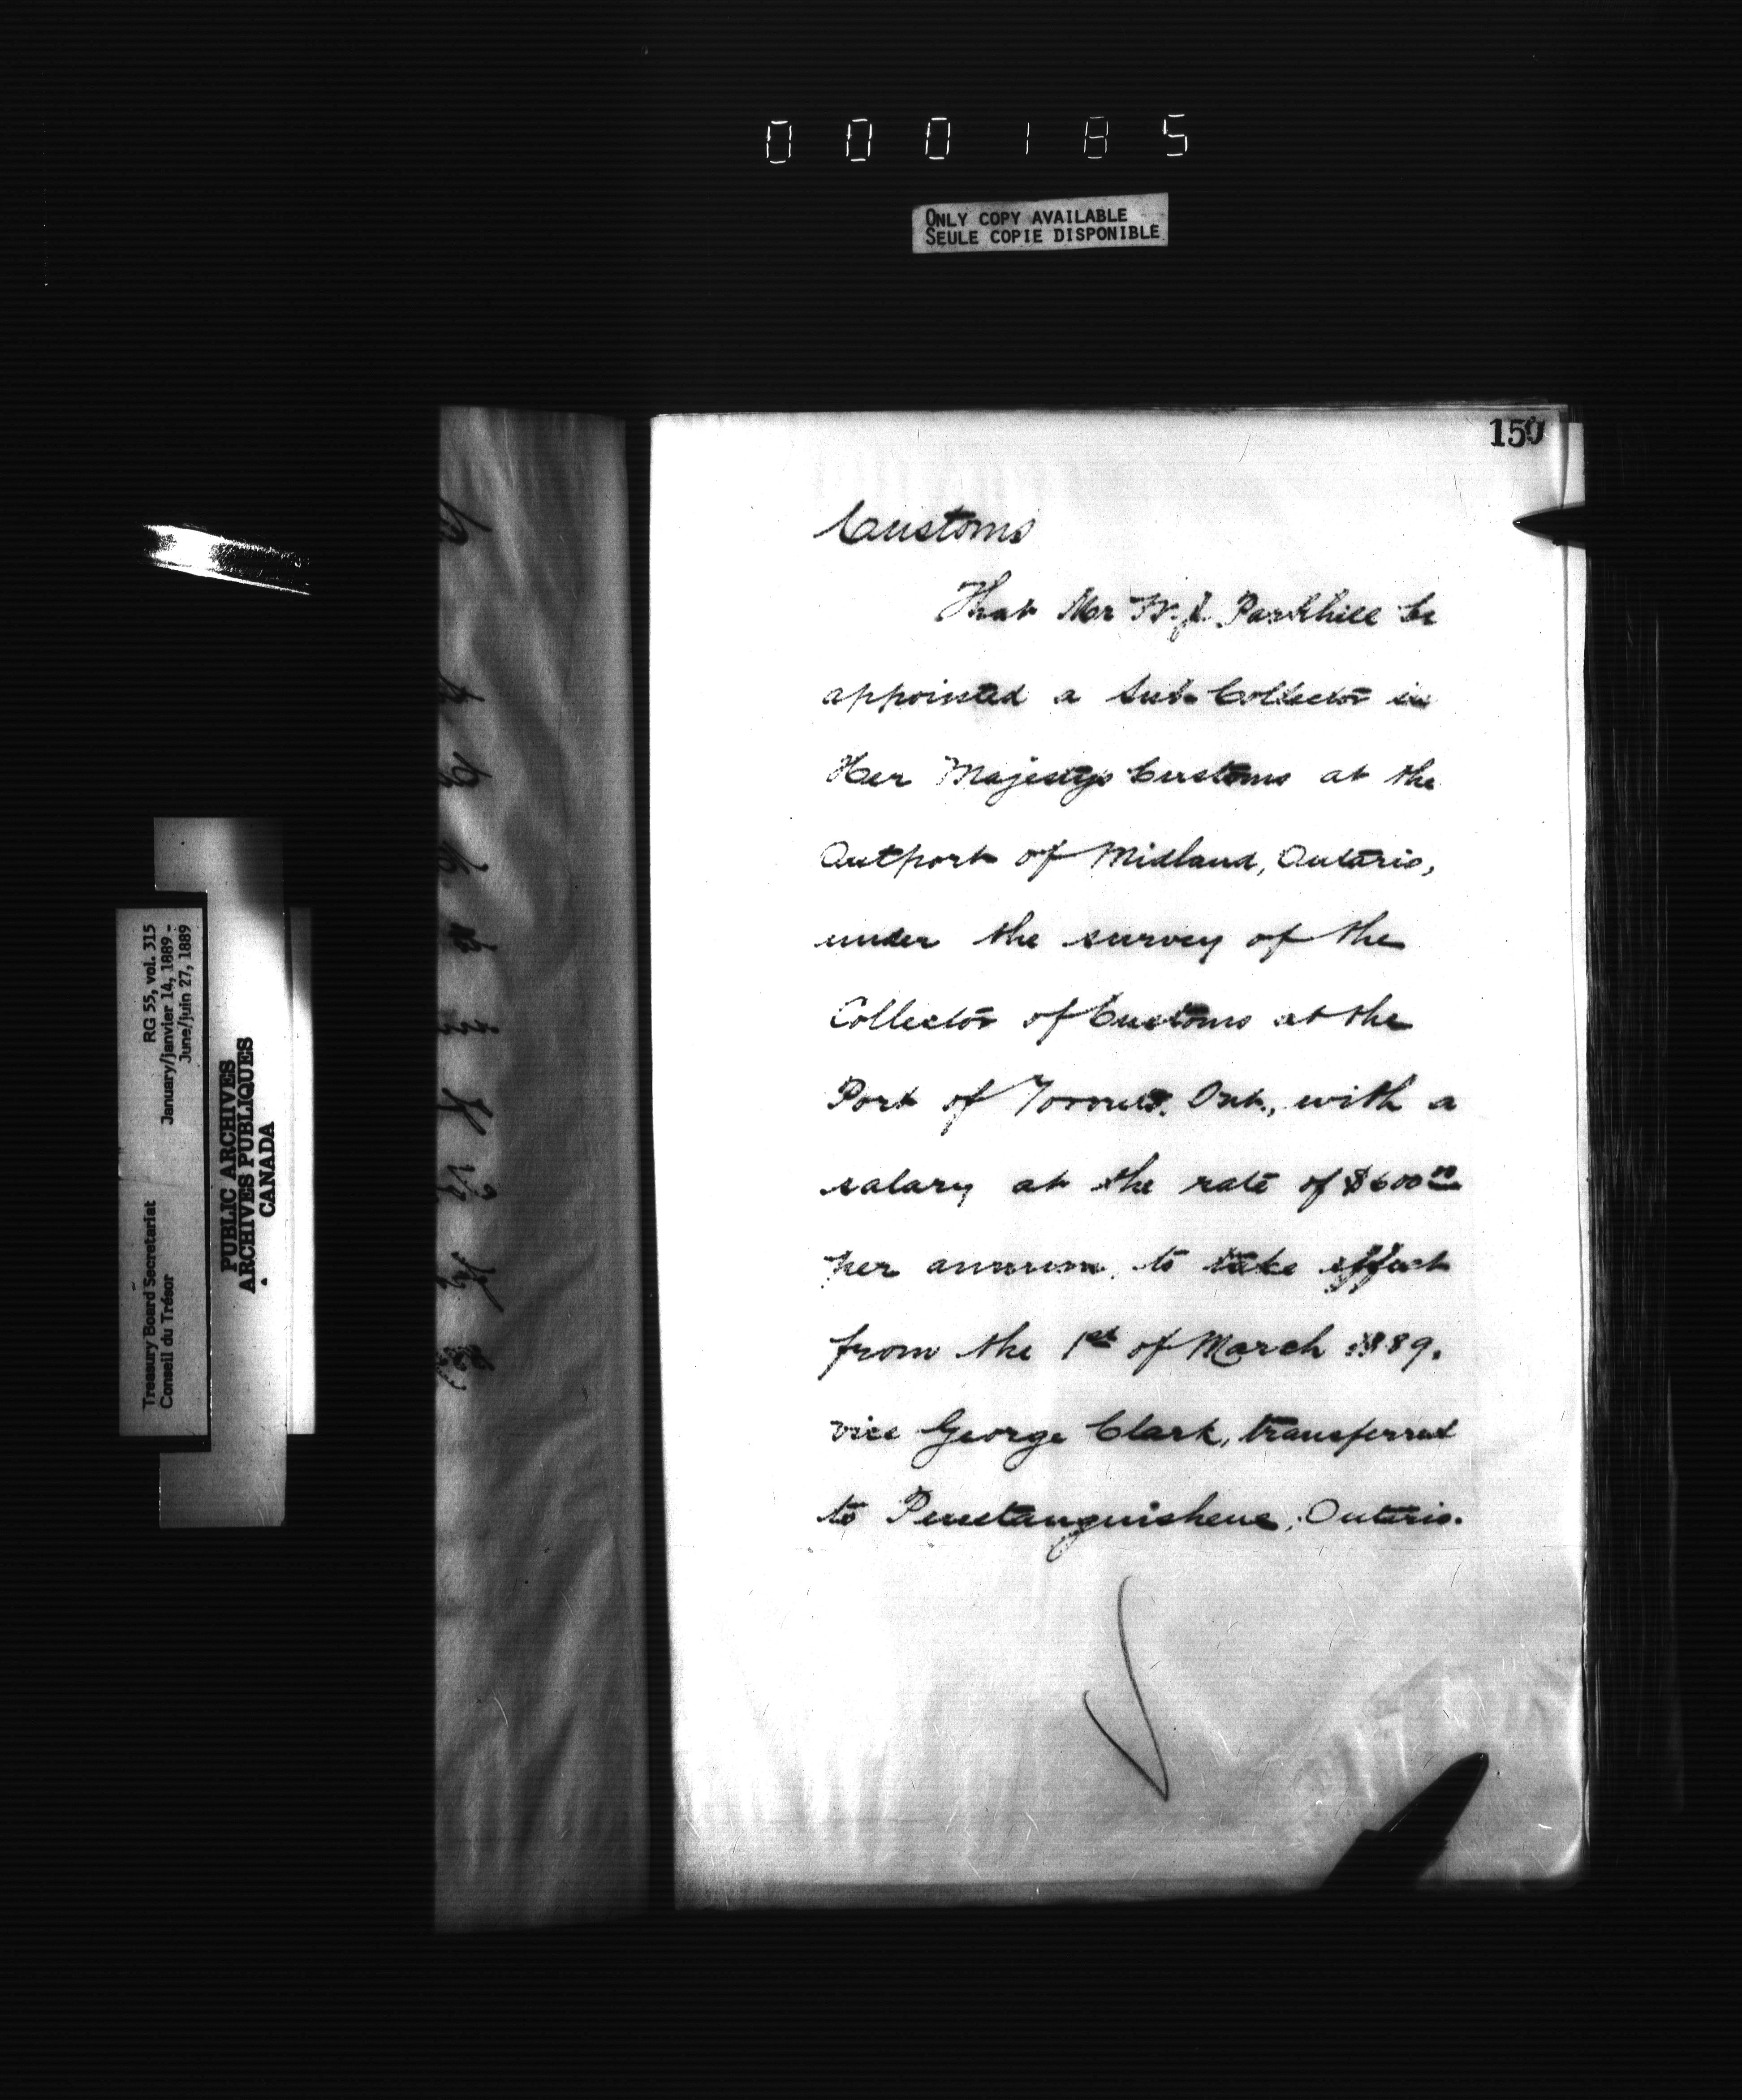 000185
ONLY COPY AVAILABLE
SEULE COPIE DISPONIBLE
150
Customs
That Mr W. J. Parkhill be
appointed a Sub-Collector in
Her Majestys Customs at the
Outport of Midland, Ontario,
under the survey of the
Collector of Customs at the
Port of Toronto, Ont., with a
salary at the rate of $600.00
per annum, to take effect
from the 1st of March 1889.
vice George Clark, transferred
to Penetanguishene, Ontario.
Treasury Board Secretariat RG 55, vol. 315
Conseil du Trésor January/janvier 14, 1889 -
June/juin 27, 1889
PUBLIC ARCHIVES
ARCHIVES PUBLIQUES
CANADA